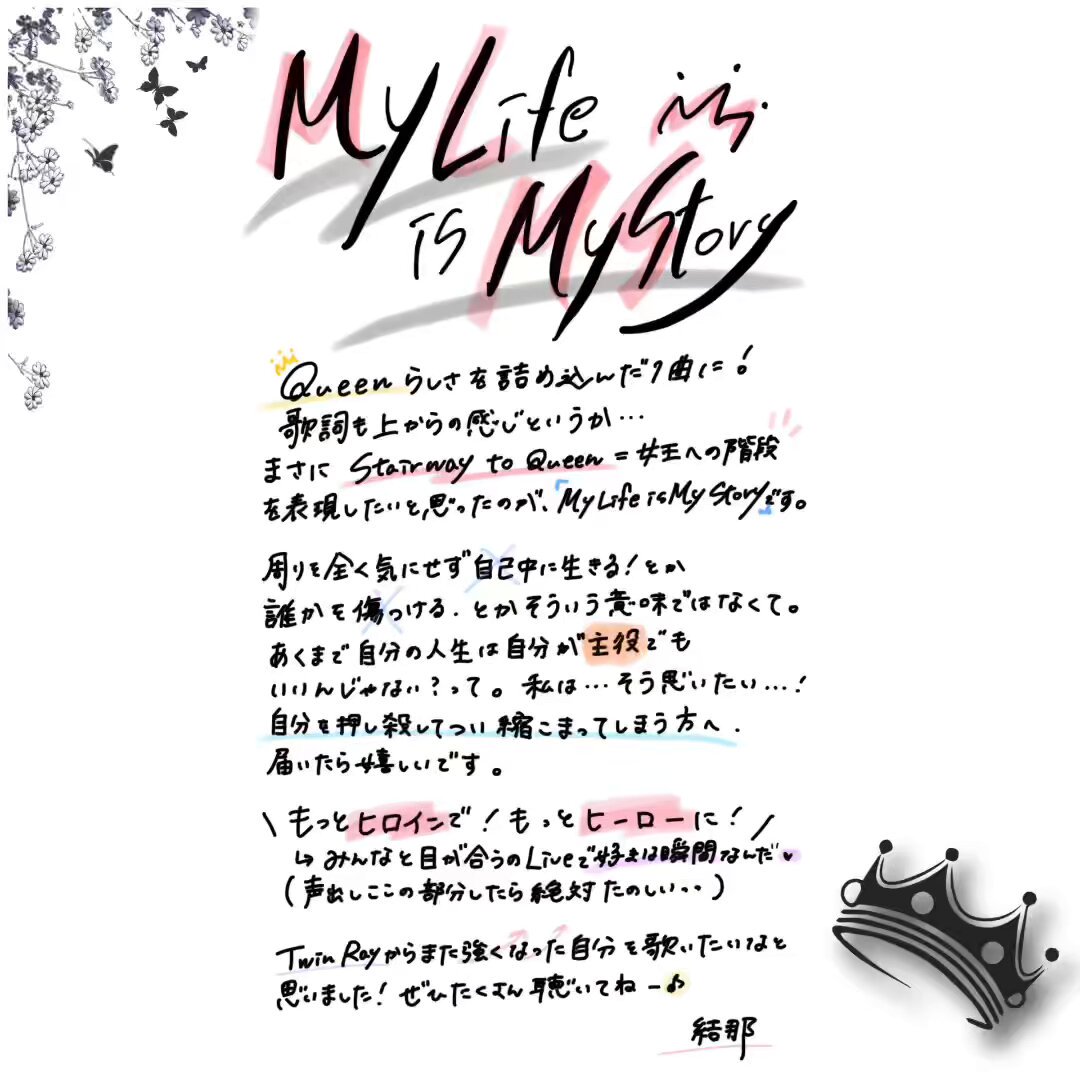 My Life
is My Story
Queenらしさを詰め込んだ1曲に!
歌詞も上からの感じというか…
まさに Stairway to Queen = 女王への階段
を表現したいと思ったのが、『My Life is My Story』です。
周りを全く気にせず自己中に生きる!とか
誰かを傷つける.とかそういう意味ではなくて。
あくまで自分の人生は自分が主役でも
いいんじゃない?って。私は…そう思いたい…!
自分を押し殺してつい縮こまってしまう方へ.
届いたら嬉しいです。
\ もっとヒロインで!もっとヒーローに! /
↳ みんなと目が合うのLiveで好きな瞬間なんだ♥
(声出しここの部分したら絶対たのしい..)
Twin Rayからまた強くなった自分を歌いたいなと
思いました!ぜひたくさん聴いてねー♪
結那